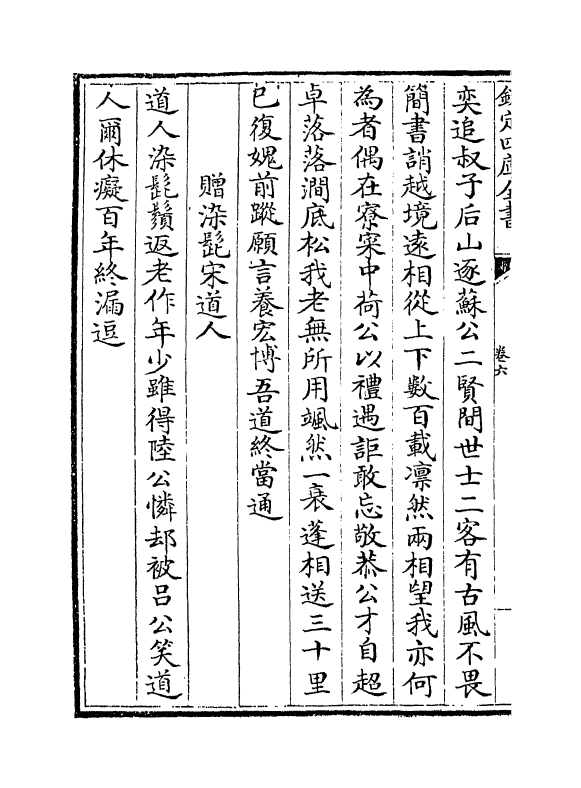 欽定四庫全書
卷六
奕追叔子后山逐蘇公二賢間世士二客有古風不畏
簡書誚越境遠相從上下數百載凛然兩相望我亦何
為者偶在寮寀中荷公以禮遇詎敢忘敬恭公才自超
卓落落澗底松我老無所用颯然一衰蓬相送三十里
已復媿前蹤願言養宏博吾道終當通
贈染髭宋道人
道人染髭鬚返老作年少雖得陸公憐却被呂公笑道
人爾休癡百年終漏逗